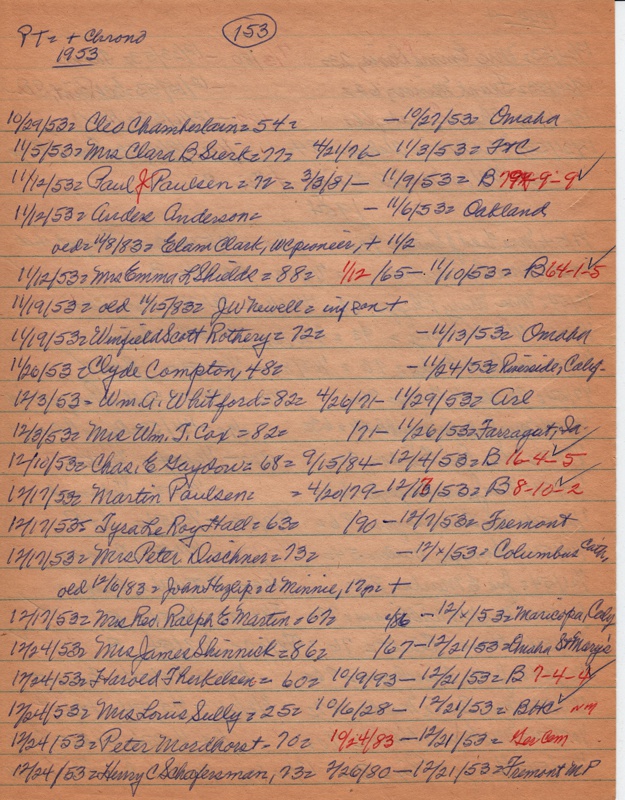 PT= + Chrono
153
1953
10/29/53= Cleo Chamberlain= 54= — 10/27/53= Omaha
11/5/53= Mrs Clara B Sierk= 77= 4/21/76 11/3/53=
11/12/53= Paul J Paulsen= 72= 3/3/81— 11/9/53= B 9-9 ✓
11/12/53= Anderson= — 11/6/53= Oakland
oed= 11/8/83= Elam Clark, WC pioneer, + 11/2
11/12/53= Mrs Emma L Shields= 88= 1/12/65— 11/10/53= B 64-1-5 ✓
11/19/53= oed 11/15/83= J W Newell= inf son +
11/19/53= Winfield Scott Rothery= 72= —11/13/53= Omaha
11/26/53= Clyde Compton, 48= —11/24/53= Riverside, Calif-
12/3/53= Wm. A. Whitford= 82= 4/26/71— 11/29/53= Arl
12/3/53= Mrs Wm. T. Cox= 82= /71— 11/26/53= Farragut, Ia-
12/10/53= Chas. E Gaydow= 68= 9/15/84— 12/4/53= B 16-4-5 ✓
12/17/53= Martin Paulsen= = 4/20/79—12/13/53= B 8-10-2 ✓
12/17/53= Tyra Le Roy Hall= 63= /90 —12/7/53= Fremont
12/17/53= Mrs Peter Dischner= 73= —12/x/53= Columbus Cath,
oed 12/6/83= Joan Hazlip= d Minnie, 17m +
12/17/53= Mrs Rev. Ralph E Martin= 67= 4/86 —12/x/53= Maricopa, Calif
12/24/53= Mrs James Shinnick= 86= /67—12/21/53= Omaha St Mary's
12/24/53= Harold Therkelsen= 60= 10/9/93—12/21/53= B 7-4-4 ✓
12/24/53= Mrs Louis Sully= 25= 10/6/28— 12/21/53= BHC ✓ nm
12/24/53= Peter Mordhorst= 70= 10/24/83 —12/21/53= Ger Cem
12/24/53= Henry C Schafersman, 73= 7/26/80 —12/21/53= Fremont MP